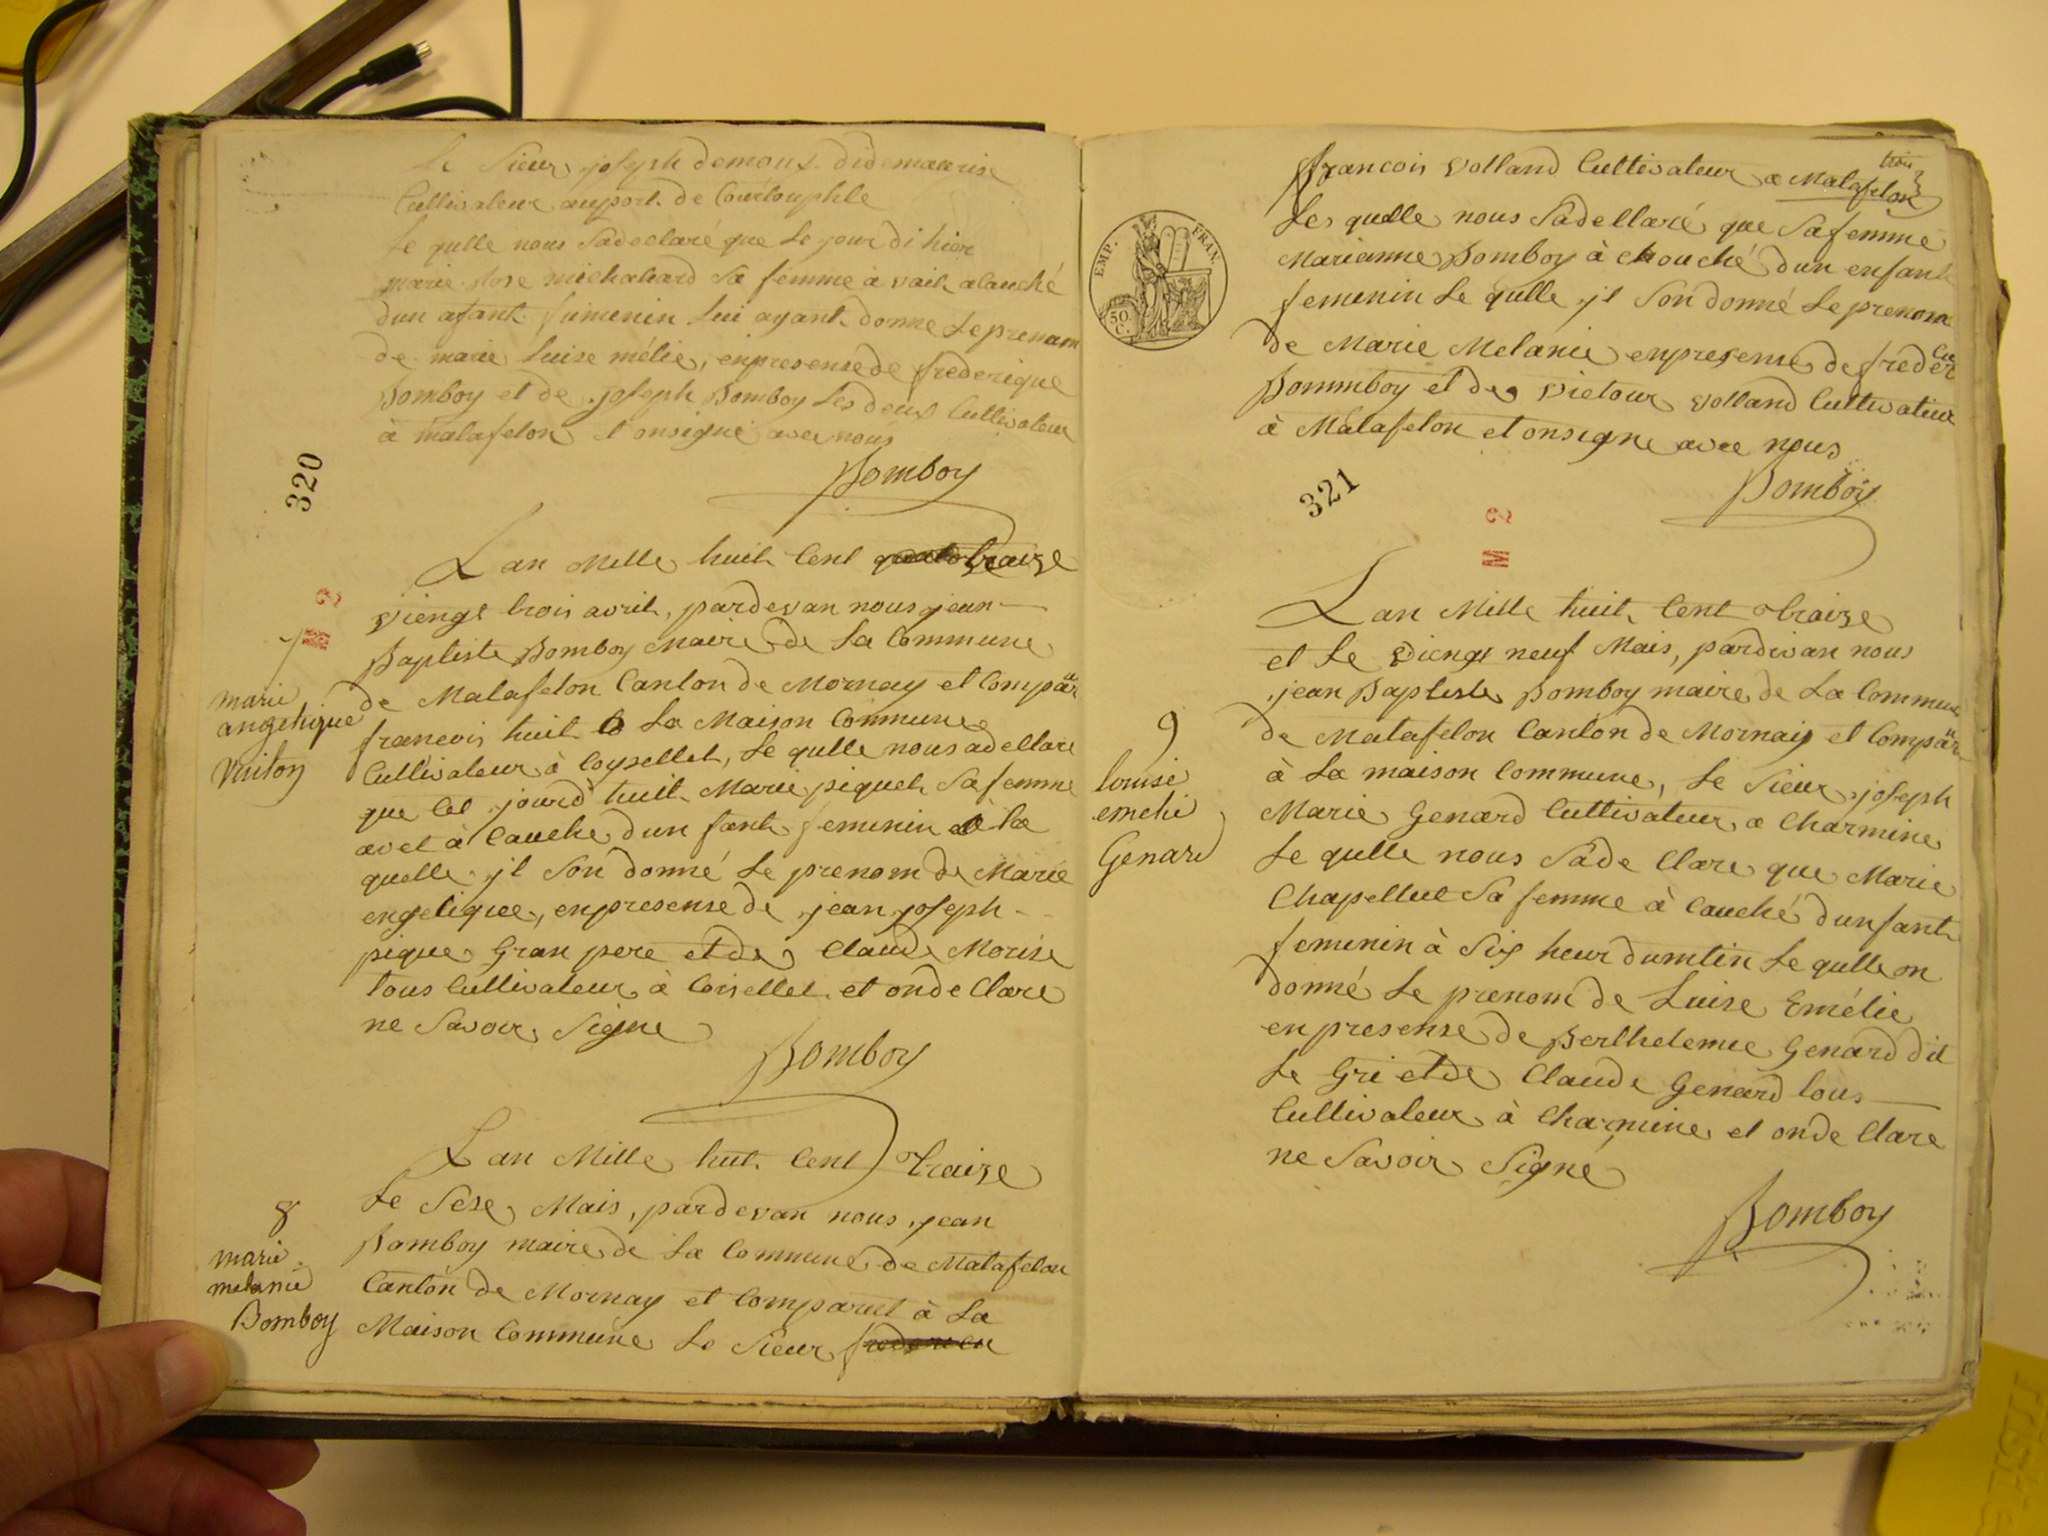 Le Sieur joseph demons didemauris
Cultivateur auport de Courtouphle
Le qulle nous Sadeclaré que Le jour di hier
marie Rose michalard Sa femme à vait alauché
dun afant fumenin Lui ayant donne Le prenom
de marie Luise mélie, enpresense de frederique
Bomboy et de joseph Bomboy Les deux Cultivateur
à malafelon et onsigné avec nous
Bomboy
320
M 2
7
marie
angelique
Vuiton
Lan Mille huit Cent traize
vienge trois avril, pardevan nous jean
Baptiste Bomboy Maire de La Commune
de Matafelon Canton de Mornay et Compar
francois huit La Maison Commune
Cultivateur à Coysellet, Le qulle nous adellare
que Cet jourd huit Marie piquet Sa femme
avet à Cauche dun fant feminin à la
quelle jl Son donné Le prenom de Marie
engelique, enpresense de jean joseph
pique Gran pere et de Claude Morise
tous Cultivateur à Coisellet et onde Clare
ne Savoir Signe
Bomboy
8
marie
melanie
Bomboy
Lan Mille huit Cent traize
Le Sese Mais, pardevan nous jean
Bomboy maire de La Commune de Matafelon
Canton de Mornay et Comparut à La
Maison Commune Le Sieur
trois
francois Volland Cultivateur a Matafelon
EMP. FRAN.
50 C.
Les quelle nous Sadellaré que Sa femme
Marianne Bomboy à Chouché dun enfant
femenin Le qulle jl Son donné Le prenom
de Marie Melanie enpresense de frederic
Bommboy et de Vietour Volland Cultivatieur
à Matafelon et onsigne avec nous
Bomboy
321
M 2
9
louise
emelie
Genard
Lan Mille huit Cent traize
et Le vienge neuf Mais, pardevan nous
jean Baptiste Bomboy maire de La Commune
de Matafelon Canton de Mornay et Compar
à La maison Commune, Le Sieur joseph
Marie Genard Cultivateur a Charmine
Le qulle nous Sade Clare que Marie
Chapellut Sa femme à Cauché dunfant
femenin à Six heur dumtin Le qulle on
donné Le prenom de Luise Emélie
en presense de Berthelemie Genard dit
Le Gri et de Claude Genard tous
Cultivateur à Charmine et onde Clare
ne Savoir Signé
Bomboy